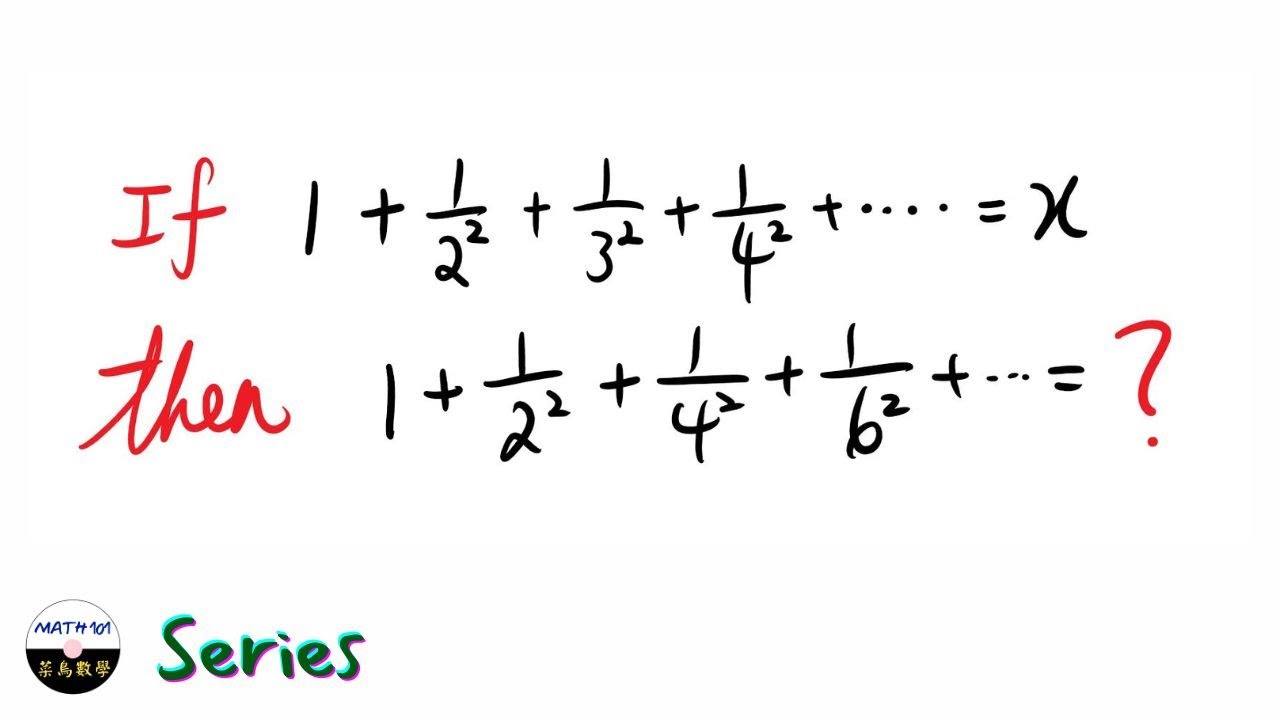 If 1 + 1/2² + 1/3² + 1/4² + ····· = x
then 1 + 1/2² + 1/4² + 1/6² + ··· = ?
MATH 101
菜鳥數學
Series